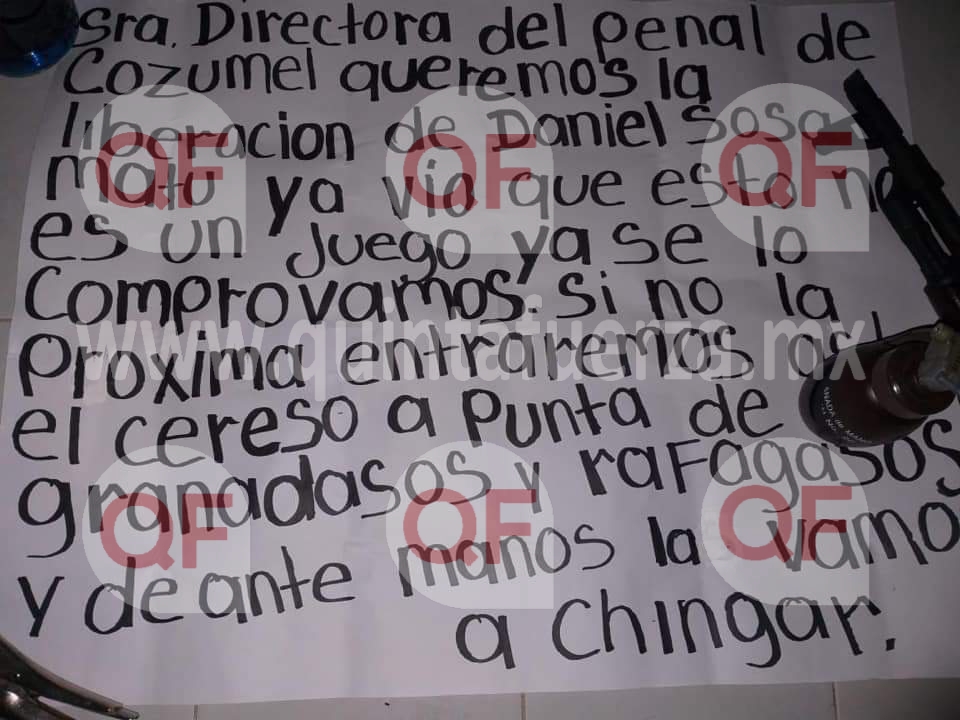 Sra. Directora del penal de
Cozumel queremos la
liberacion de Daniel Sosa
mato ya vio que esto no
es un juego ya se lo
Comprovamos. si no la
proxima entraremos asta
el cereso a punta de
granadasos y rafagasos
y de ante manos la vamo
a Chingar.
QF QF QF
QF QF QF
www.quintafuerza.mx
GRANADA DE MANO